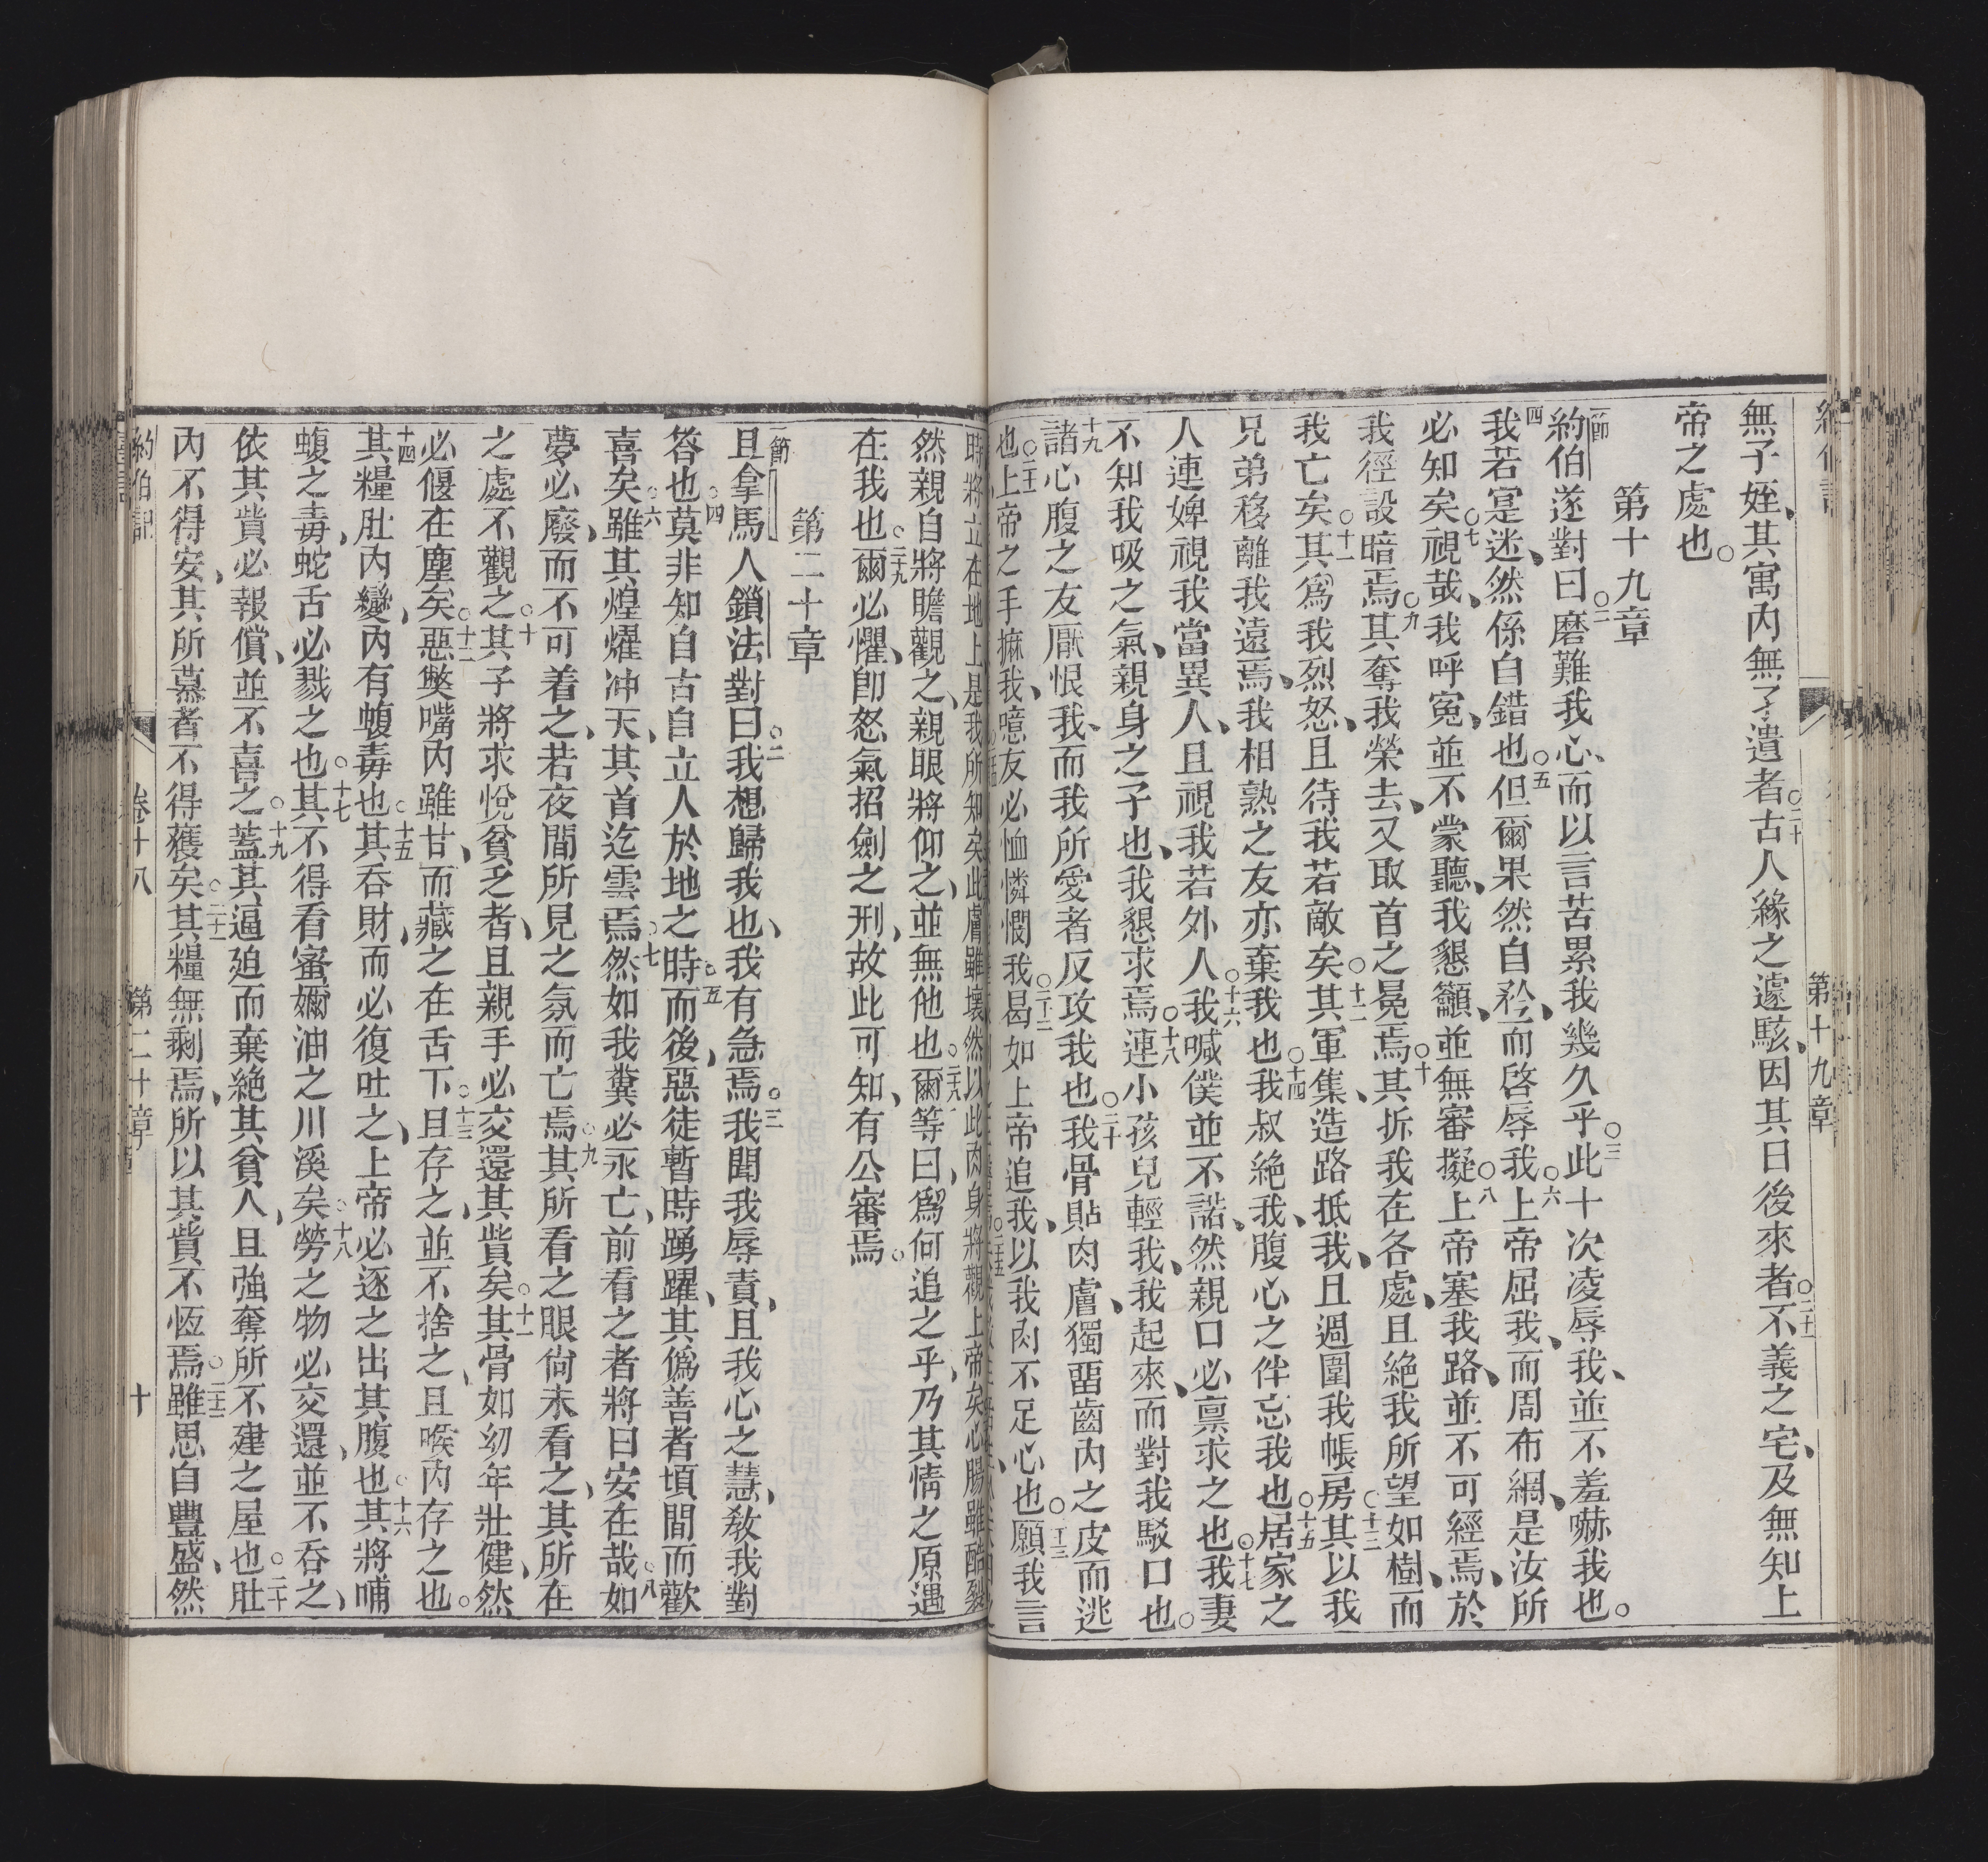 第十九章
無子姪、其寓內無孑遺者○二十古人緣之遽駭、因其日後來者○二十一不義之宅、及無知上
帝之處也○
第十九章
一節約伯遂對曰○二磨難我心、而以言苦累我幾久乎○三此十次凌辱我、並不羞嚇我也。
四我若寔迷、然係自錯也○五但爾果然自矜、而啓辱我○六上帝屈我、而周布網、是汝所
必知矣○七視哉、我呼寃、並不蒙聽、我懇籲、並無審擬○八上帝塞我路、並不可經焉、於
我徑設暗焉○九其奪我榮去、又取首之冕焉○十其拆我在各處、且絕我所望如樹、而
我亡矣○十一其爲我烈怒、且待我若敵矣○十二其軍集、造路抵我、且週圍我帳房○十三其以我
兄弟移離我遠焉、我相熟之友亦棄我也○十四我叔絕我、腹心之伴忘我也○十五居家之
人連婢視我當異人、且視我若外人○十六我喊僕並不諾、然親口必禀求之也○十七我妻
不知我吸之氣、親身之子也、我懇求焉○十八連小孩兒輕我、我起來、而對我駁口也○
十九諸心腹之友厭恨我、而我所愛者反攻我也○二十我骨貼肉膚、獨畱齒內之皮而逃
也○二十一上帝之手搟我、噫友必恤憐憫我○二十二曷如上帝追我、以我肉不足心也○二十三願我言
時將立在地上是我所知矣此膚雖壞然以此肉身將觀上帝矣心腸雖酷裂
然親自將瞻觀之、親眼將仰之、並無他也○二十八爾等曰、爲何追之乎、乃其情之原遇
在我也○二十九爾必懼、卽怒氣招劍之刑、故此可知、有公審焉○
第二十章
一節且拿馬人鎖法對曰○二我想歸我也、我有急焉○三我聞我辱責、且我心之慧、敎我對
答也○四莫非知自古自立人於地之時○五而後、惡徒暫時踴躍、其僞善者頃間而歡
喜矣○六雖其煌燿冲天、其首迄雲焉○七然如我糞必永亡、前看之者將曰安在哉○八如
夢必廢、而不可着之、若夜間所見之氛而亡焉○九其所看之眼尙未看之、其所在
之處不觀之○十其子將求悅貧乏者、且親手必交還其貲矣○十一其骨如幼年壯健、然
必偃在塵矣○十二惡獘嘴內雖甘、而藏之在舌下○十三且存之、並不捨之、且喉內存之也○
十四其糧肚內變、內有蝮毒也○十五其吞財、而必復吐之、上帝必逐之出其腹也○十六其將哺
蝮之毒、蛇舌必戮之也○十七其不得看蜜嬭油之川溪矣○十八勞之物必交還、並不吞之、
依其貲必報償、並不喜之○十九蓋其逼廹而棄絕其貧人、且強奪所不建之屋也○二十肚
內不得安、其所慕者不得獲矣○二十一其糧無剩焉、所以其貲不恆焉○二十二雖思自豐盛、然
約伯記 卷十八 第二十章 十